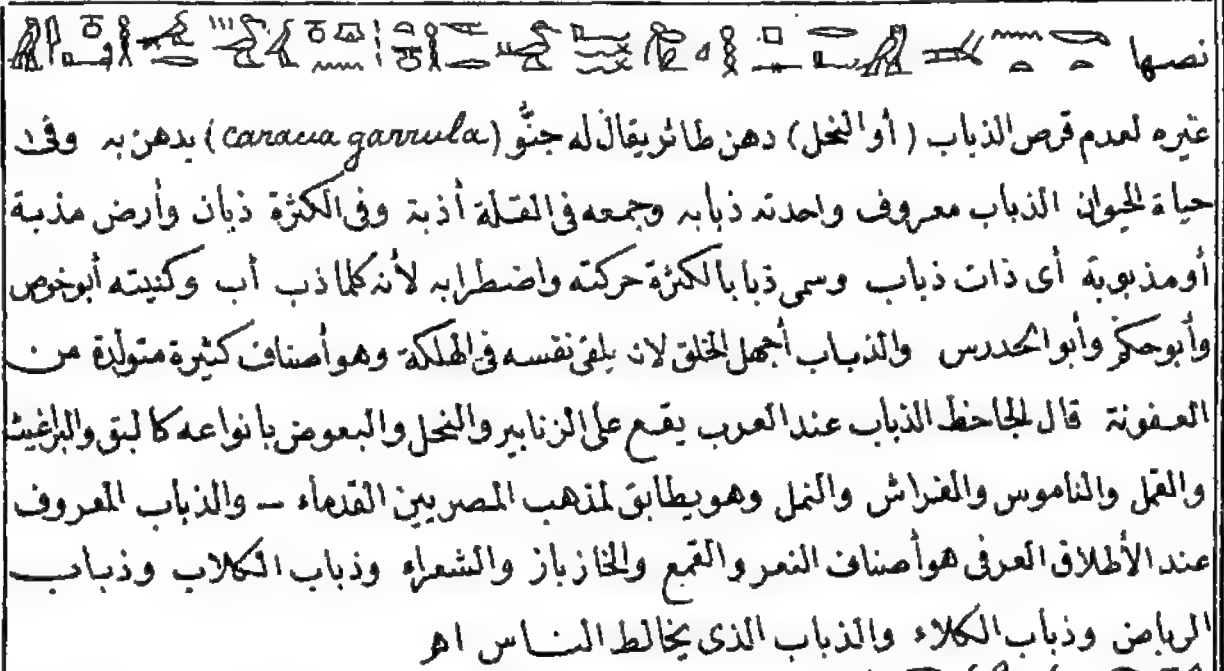 نصها
غيره لعدم قرص الذباب (أو النحل) دهن طائر يقال له جنُّو (caracia garrula) يدهن به وفى
حياة الحيوان الذباب معروف واحدته ذبابه وجمعه فى القلة أذبة وفى الكثرة ذبان وأرض مذبة
أو مذبوبة أى ذات ذباب وسمى ذبابا لكثرة حركته واضطرابه لأنه كلما ذب أب وكنيته أبو حفص
وأبو حكم وأبو الحدرس والذباب أجهل الخلق لانه يلقى نفسه فى الهلكة وهو أصناف كثيرة متولدة من
العفونة قال الجاحظ الذباب عند العرب يقع على الزنابير والنحل والبعوض بانواعه كالبق والبراغيث
والقمل والناموس والفراش والنمل وهو يطابق لمذهب المصريين القدماء – والذباب المعروف
عند الأطلاق العرفى هو أصناف النعر والقمع والخازباز والشعراء وذباب الكلاب وذباب
الرياض وذباب الكلاء والذباب الذى يخالط الناس اهـ